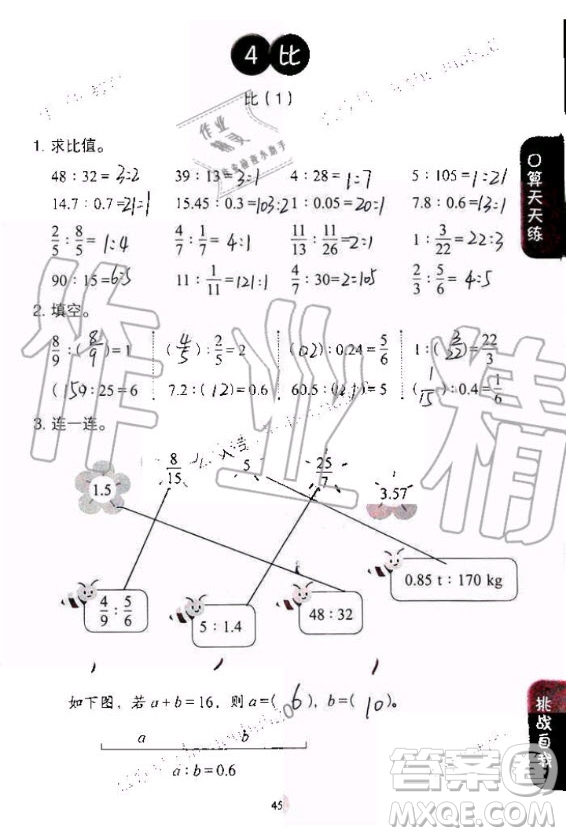 4 比
比（1）
1. 求比值。
48 : 32 = 3:2 39 : 13 = 3:1 4 : 28 = 1:7 5 : 105 = 1:21
14.7 : 0.7 = 21=1 15.45 : 0.3 = 103:2 1 : 0.05 = 20:1 7.8 : 0.6 = 13:1
2/5 : 8/5 = 1:4 4/7 : 1/7 = 4:1 11/13 : 11/26 = 2:1 1 : 3/22 = 22:3
90 : 15 = 6:5 11 : 1/11 = 121:1 4/7 : 30 = 2:105 2/3 : 5/6 = 4:5
2. 填空。
8/9 : (8/9) = 1 (4/5) : 2/5 = 2 ( ) : 0.24 = 5/6 1 : (3/22) = 22/3
(150) : 25 = 6 7.2 : (12) = 0.6 60.5 : (12.1) = 5 (1/15) : 0.4 = 1/6
3. 连一连。
1.5 8/15 5 25/7 3.57
4/9 : 5/6 5 : 1.4 48 : 32 0.85 t : 170 kg
如下图，若 a + b = 16，则 a = ( 6 )，b = ( 10 )。
a b
a : b = 0.6
45
口算天天练
挑战自我
作业精
作业精灵
答案圈
MXQE.COM